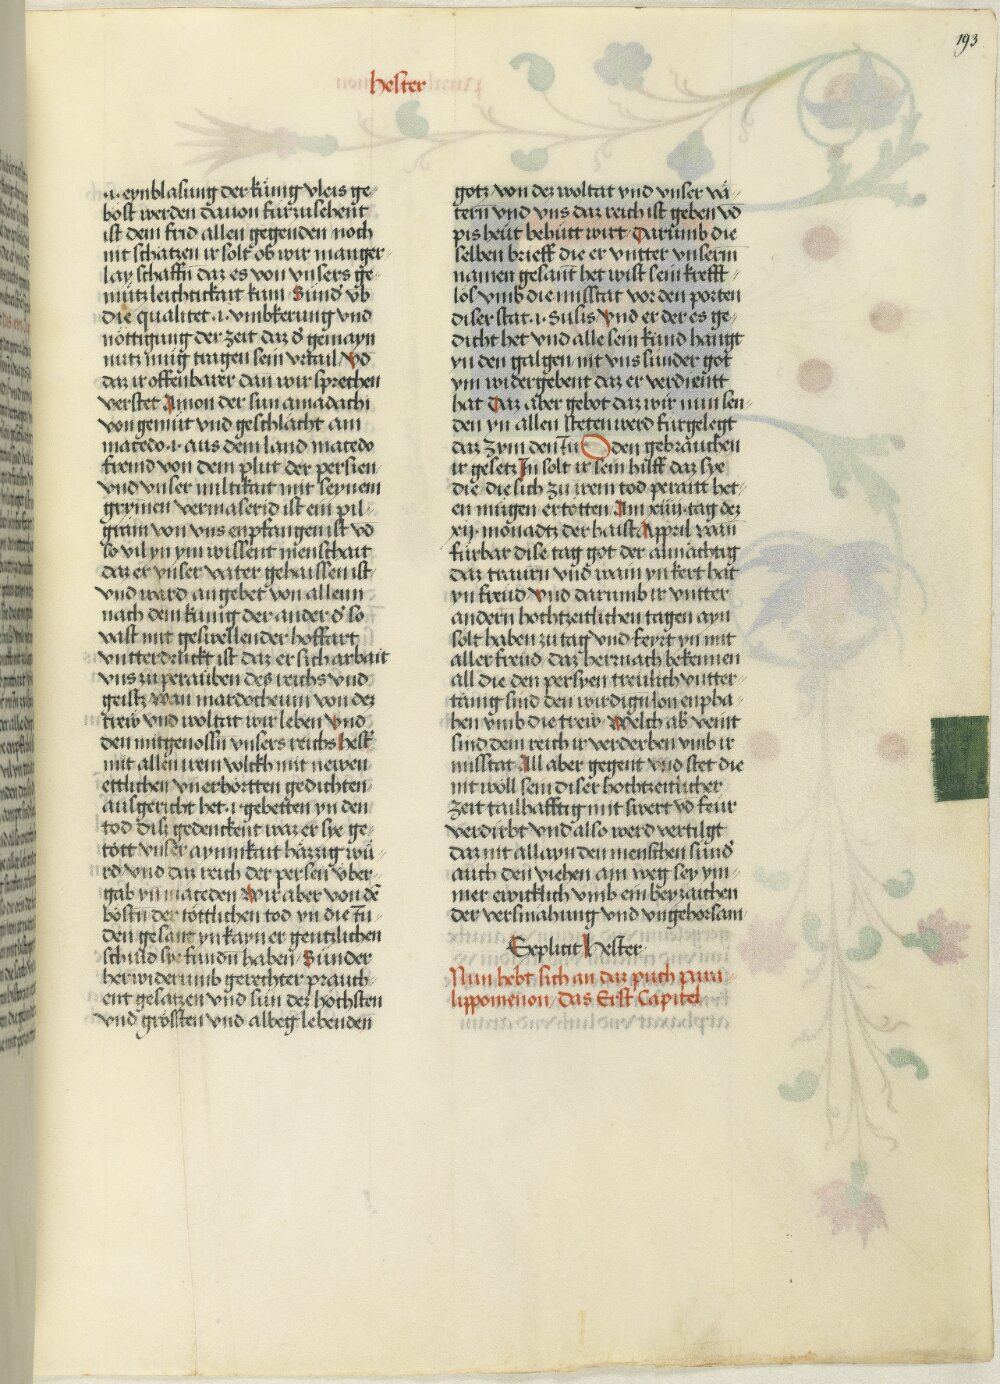 193
hester
.i. eynblasung der küng vleis ge⸗
böst werden dauon fürzusehent
ist dem frid allen gegenden noch
nit schatzen ir solt ob wir manger⸗
lay schaffn daz es von vnsers ge⸗
mütz leichtickait kum Sünd' vb
die qualitet .i. vmbkerung vnd
nöttigung der zeit daz d' gemayn
nutz müg tragen sein vrtail Vō
daz ir offenbarer dan wir sprechen
verstet Amon der sun amadachi
von gemüt vnd geschlächt am
macedo .i. aus dem land macedo
fremd von dem plut der persien⸗
vnd vnser miltikait mit seynem
grymen vermaserid ist ein pil⸗
gram von vns enpfangen ist vō
so vil yn ym wissent menschait
daz er vnser vater gehaissen ist⸗
vnd ward angebet von allenn
nach dem künig der ander d' so
vast mit geswellender hoffart
vntterdrückt ist daz er sich arbait
vns zu perauben des reichs vnd
geistz wan mardocheum von dez
trew vnd woltat wir leben vnd
den mitgenossn vnsers reichs hest'
mit allen irem volckh mit newen
ettlichen vnerhörtten gedichten⸗
ausgericht het .i. gebetten yn den
tod diß gedenckent waz er sye ge⸗
tött vnser aynmkait häzzig wü⸗
rd vnd daz reich der persen über⸗
gab yn maceden Wir aber von dē
bösten der töttlichen tod yn die iu⸗
den gesant yn kayner gentzlichen
schuld sye fundn haben Sünder
her widerumb gerechter präuch⸗
ent gesatzen vnd sün dez höchsten
vnd grössten vnd albeg lebenden
gotz von dez woltat vnd vnser vä⸗
tern vnd vns daz reich ist geben vō
pis heüt behütt wirt Darumb die
selben brieff die er vntter vnserm
namen gesant het wist sein krefft⸗
los vmb die misstat vor den porten
diser stat .i. Susis Vnd er der es ge⸗
dicht het vnd alle sein künd hangt
yn den galgen nit vns sunder got
ym widergebent daz er verdientt
hat Daz aber gebot daz wir nun sen⸗
den yn allen steten werd fürgelegt
daz zym den iu O den gebräuchen
ir gesetz In solt ir sein hilff daz sye
die die sich zu irem tod peraitt het⸗
en mügen ertötten Am xiiij tag dez
xij monadtz der haist Appril wan
fürbar dise tag got der almächtig
daz traurn vnd wain ynkert hat
yn freud vnd darumb ir vntter
andern hochtzeitlichen tagen ayn
solt haben zu tag vnd feyrt yn mit
aller freud daz hernach bekennen
all die den persyen treulich vntter⸗
tänig sind den wirdigu lon enpha⸗
hen vmb die trew Welch ab' veint
sind dem reich ir verderben vmb ir
misstat All aber gegent vnd stet die
nit wöll sein diser hochtzeitlicher
zeit tailhafftig mit swert vō feür
verdirbt vnd also werd vertilgt
daz nit allayn den menschen sünd'
auch den viehen am weg sey ym⸗
mer ewicklich vmb ein beyzaichen
der versmahung vnd vngehorsam
Explicit Hester
Nun hebt sich an daz puch para⸗
lippomenon das Erst Capitel